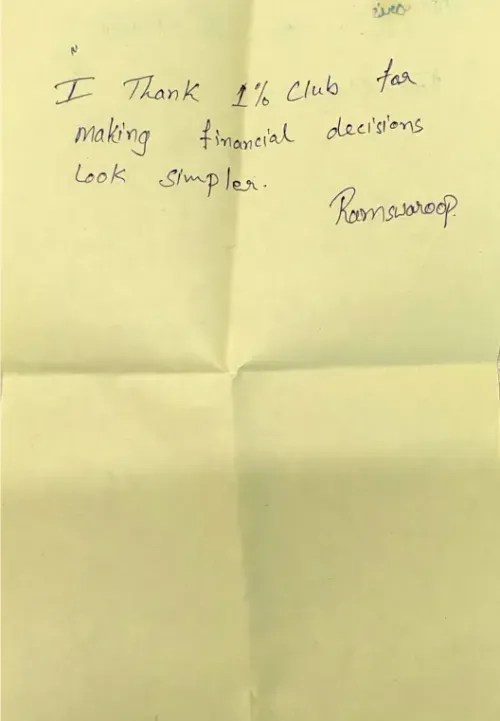 I Thank 1% Club for
making financial decisions
Look simpler.
Ramswaroop.